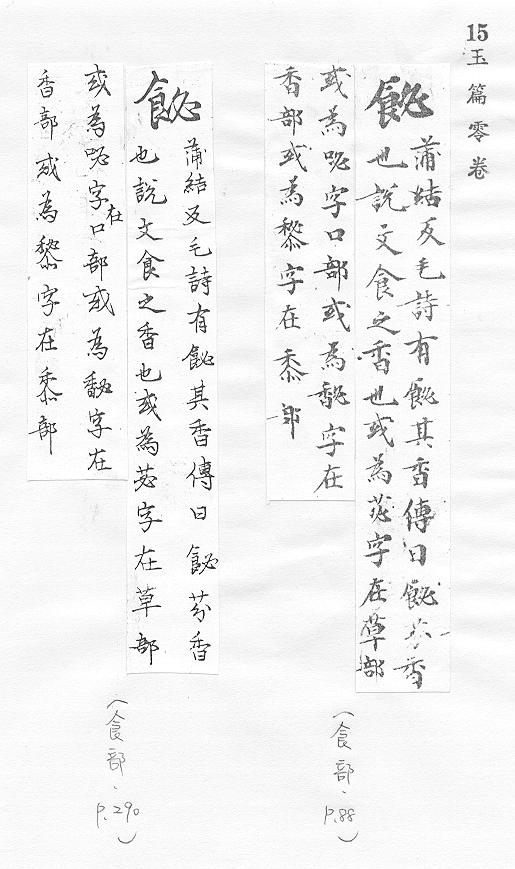 15
玉篇零卷
飶
蒲結反毛詩有飶其香傳曰飶芬香
也說文食之香也或為苾字在草部
或為咇字口部或為馝字在
香部或為䵥字在黍部
(食部、p.88)
飶
蒲結反毛詩有飶其香傳曰飶芬香
也說文食之香也或為苾字在草部
或為咇字在口部或為馝字在
香部或為䵥字在黍部
(食部、p.290)